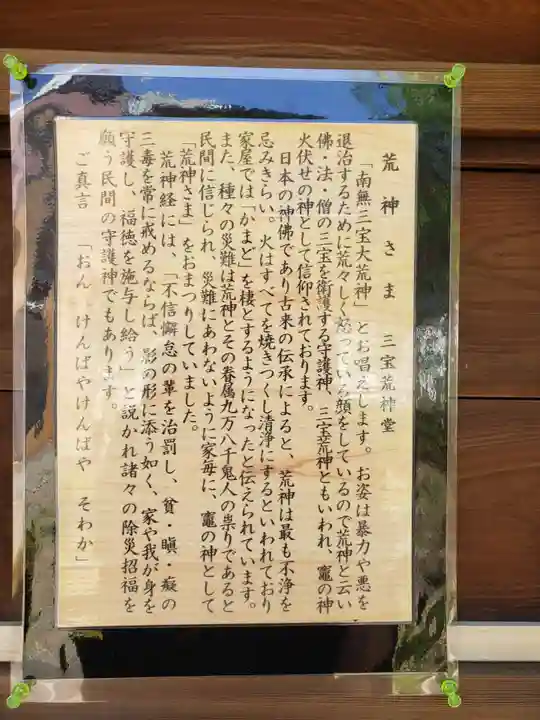 荒神さま　三宝荒神堂
「南無三宝大荒神」とお唱えします。お姿は暴力や悪を
退治するために荒々しく怒っている顔をしているので荒神と云い
佛・法・僧の三宝を衛護する守護神、三宝荒神ともいわれ、竈の神
火伏せの神として信仰されております。
日本の神佛であり古来の伝承によると、荒神は最も不浄を
忌みきらい。火はすべてを焼きつくし清浄にするといわれており
家屋では「かまど」を棲とするようになったと伝えられています。
また、種々の災難は荒神とその眷属九万八千鬼人の祟りであると
民間に信じられ、災難にあわないように家毎に、竈の神として
「荒神さま」をおまつりしていました。
荒神経には、「不信懈怠の輩を治罰し、貧・瞋・癡の
三毒を常に戒めるならば、影の形に添う如く、家や我が身を
守護し、福徳を施与し給う」と説かれ諸々の除災招福を
願う民間の守護神でもあります。
ご真言　「おん　けんばやけんばや　そわか」